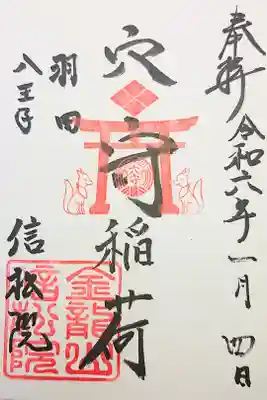 奉拝
令和六年一月四日
穴守稲荷
羽田
八王子
信松院
金龍山
信松院